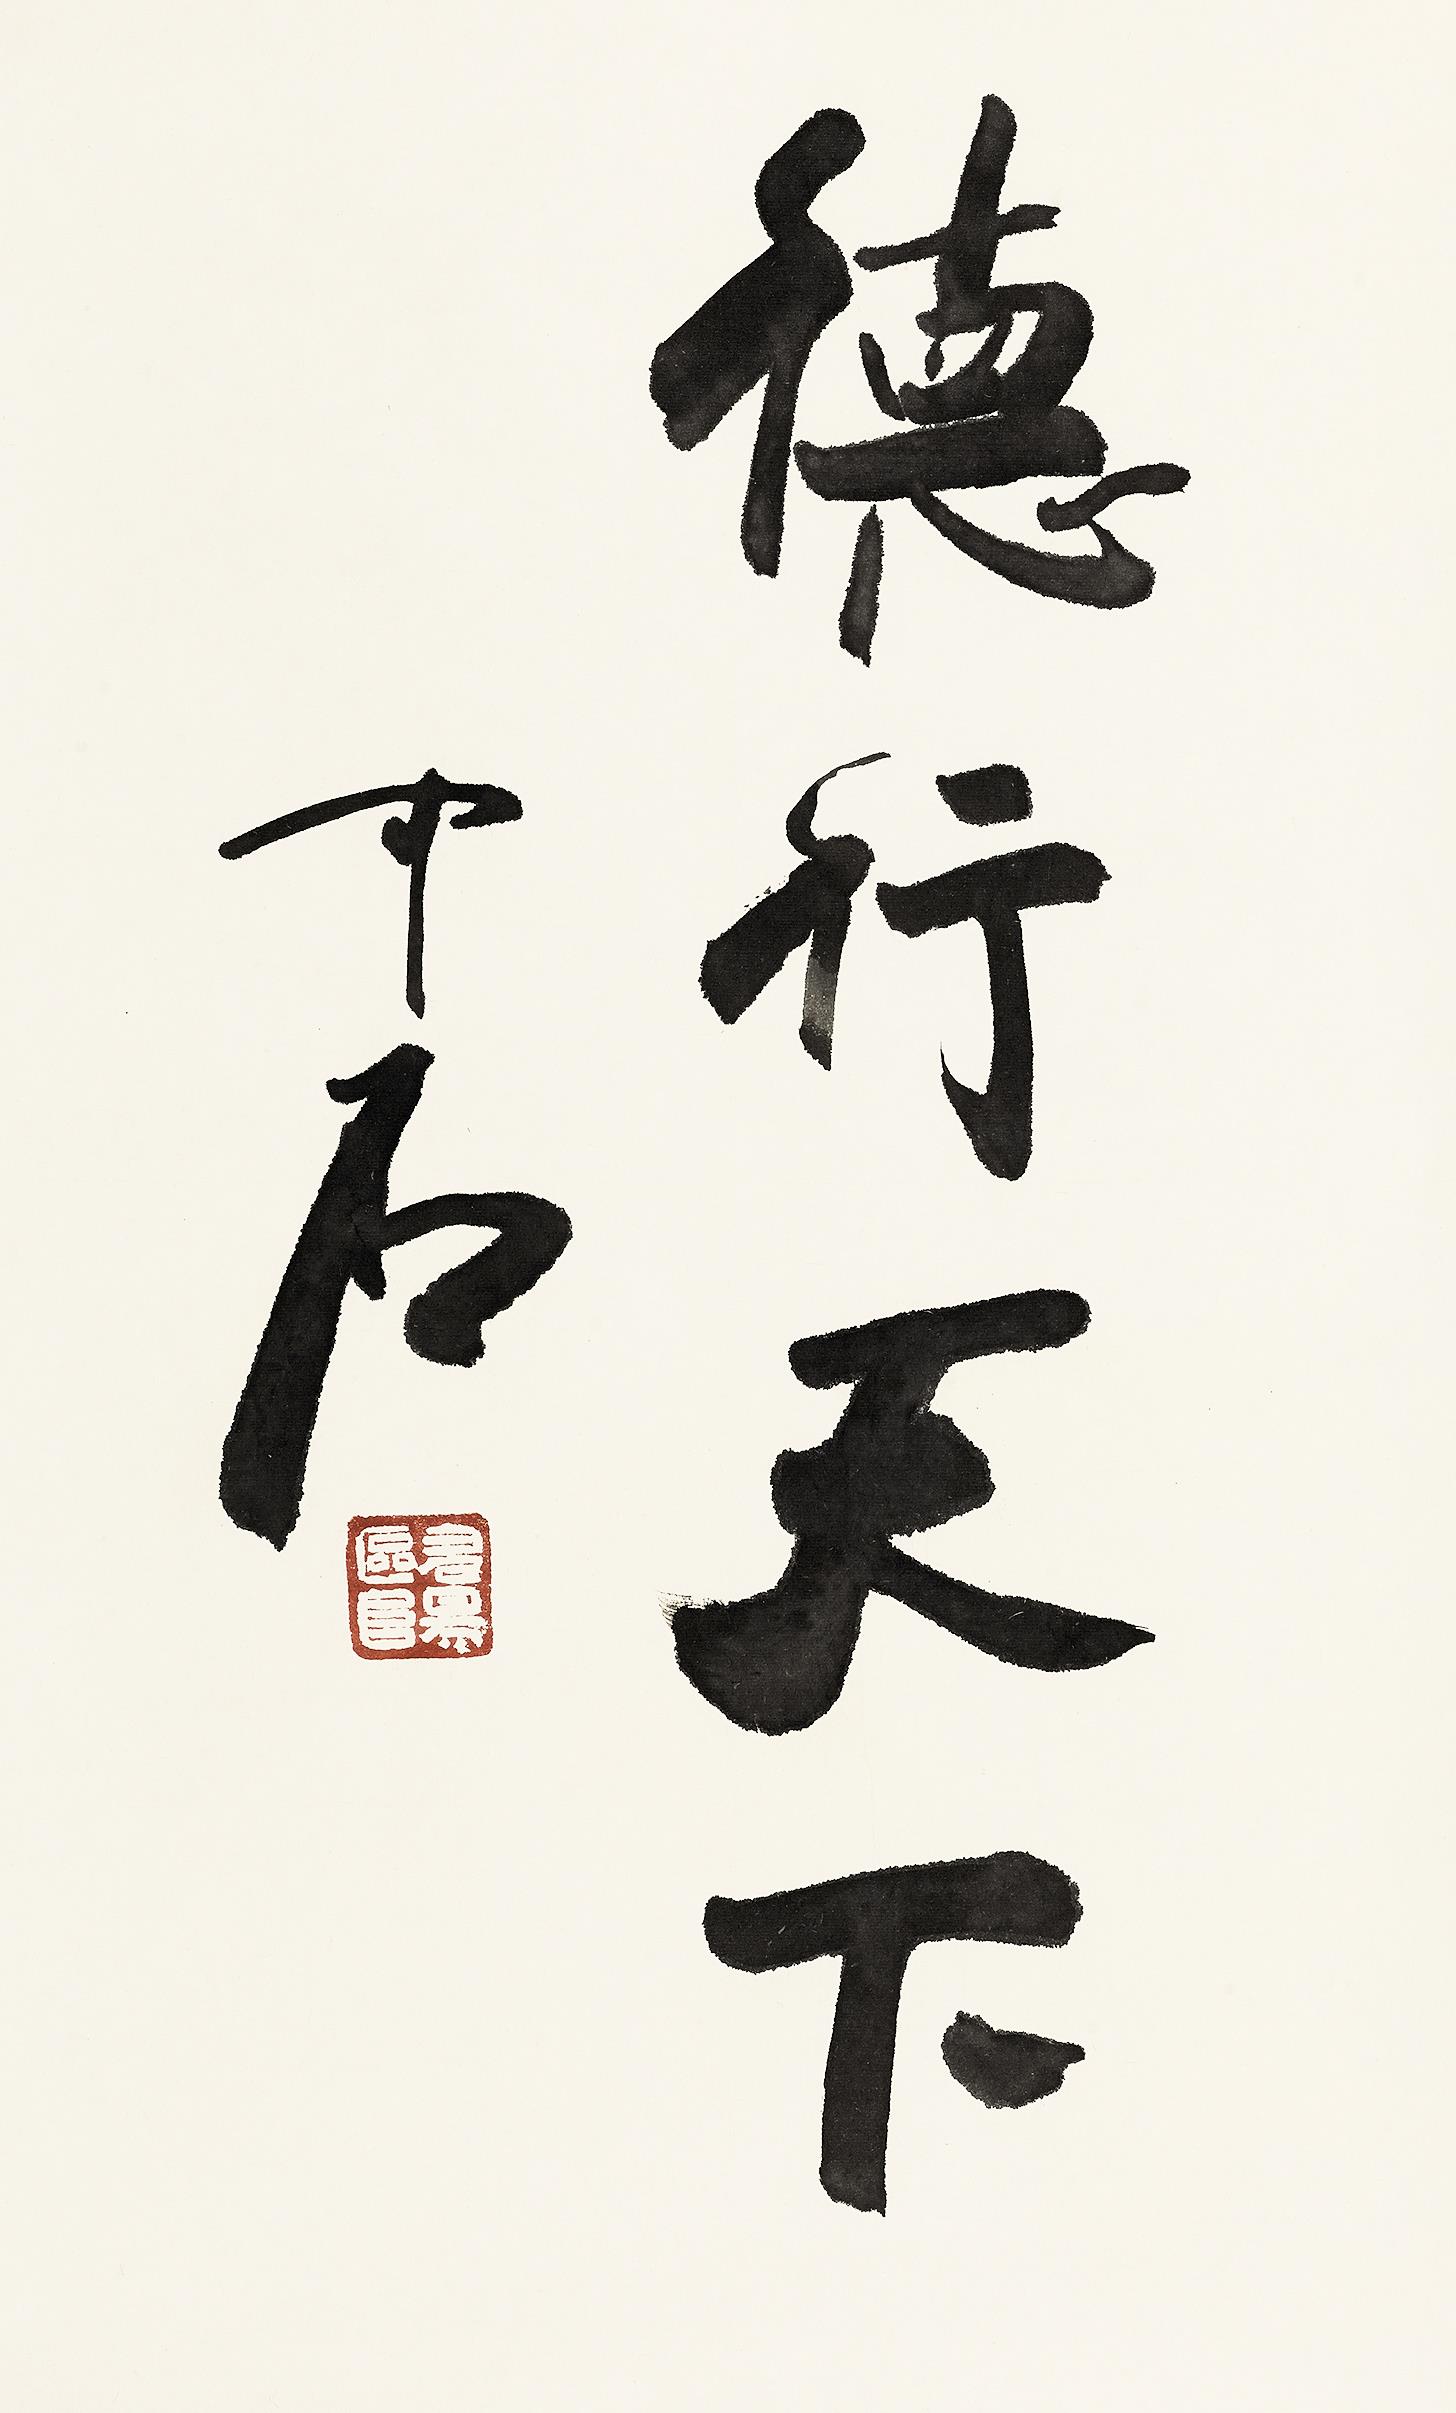 德行天下
中石